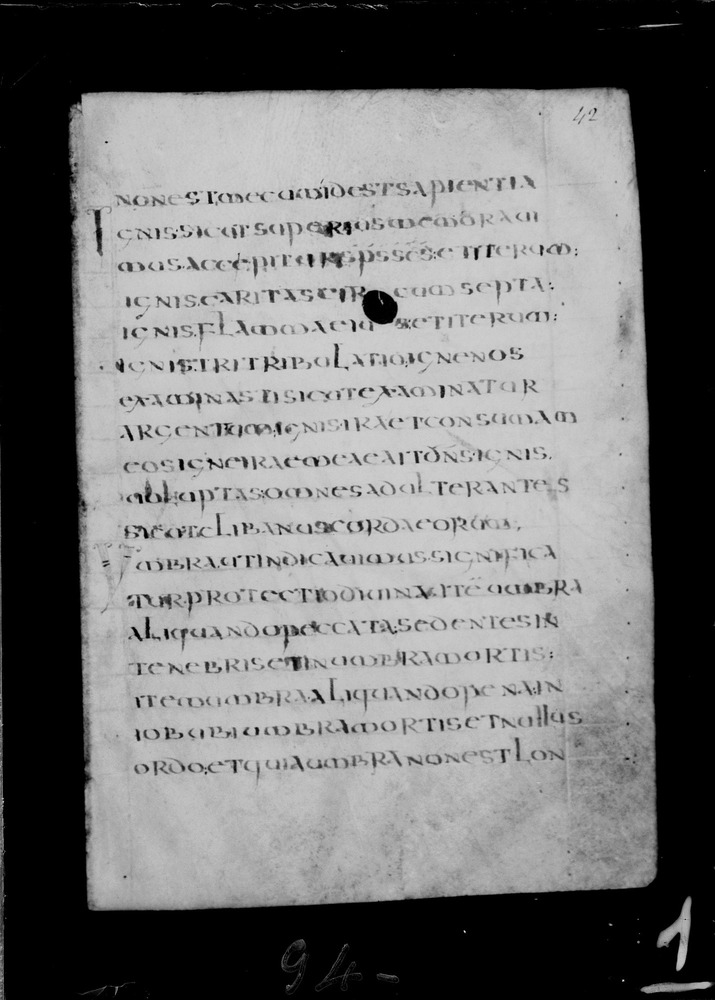 42
NONESTMECUMIDESTSAPIENTIA
IGNISSICUTSUPERIUSMEMORAUI
MUSACCEPITURSPSSCSETITERUM:
IGNISCARITASCIR CUMSEPTA:
IGNISFLAMMAEIUSETITERUM:
IGNISTRITRIBULATIOIGNENOS
EXAMINASTISICUTEXAMINATUR
ARGENTUMIGNISIRAETCONSUMAM
EOSIGNEIRAEMEAEAITDNSIGNIS.
UOLUPTASOMNESADULTERANTES
SICUTCLIBANUSCORDAEORUM,
UMBRAUTINDICAUIMUSSIGNIFICA
TURPROTECTIODIUINAITEUMBRA
ALIQUANDOPECCATASEDENTESIN
TENEBRISETINUMBRAMORTIS:
ITEMUMBRAALIQUANDOPENAIN
IOBUBIUMBRAMORTISETNULLUS
ORDOETQUIAUMBRANONESTLON
94-
1